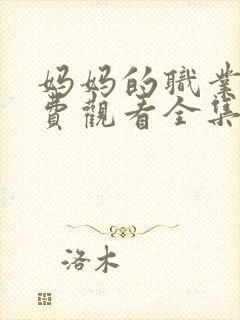 妈妈的職業
費觀看全集
洛木